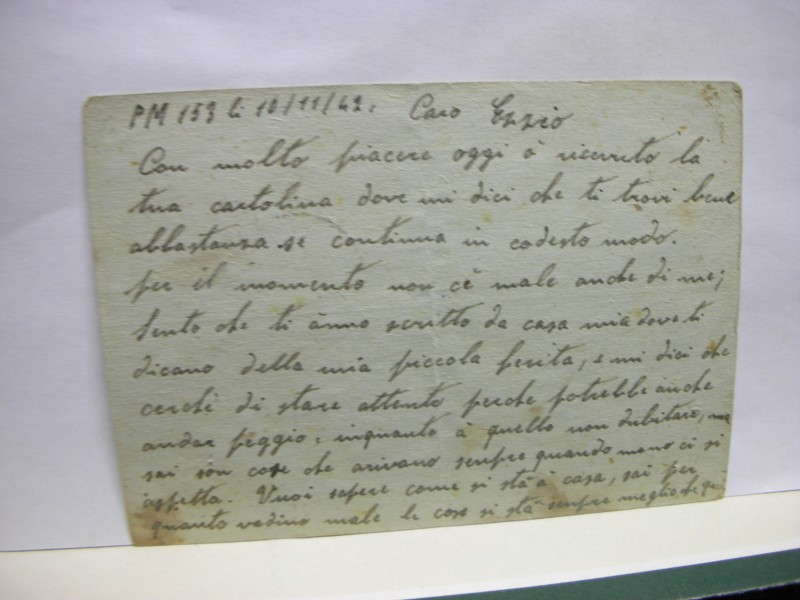 PM 153 li 10/11/42. Caro Ezzio
Con molto piacere oggi ò ricevuto la
tua cartolina dove mi dici che ti trovi bene
abbastanza se continua in codesto modo.
per il momento non cè male anche di me;
Sento che ti ànno scritto da casa mia dove ti
dicano della mia piccola ferita, e mi dici che
cerchi di stare attento perche potrebbe anche
andar peggio, inquanto à quello non dubitare, ma
sai son cose che arivano sempre quando meno ci si
aspetta. Vuoi sapere come si stà à casa, sai per
quanto vadino male le cose si stà sempre meglio che qu